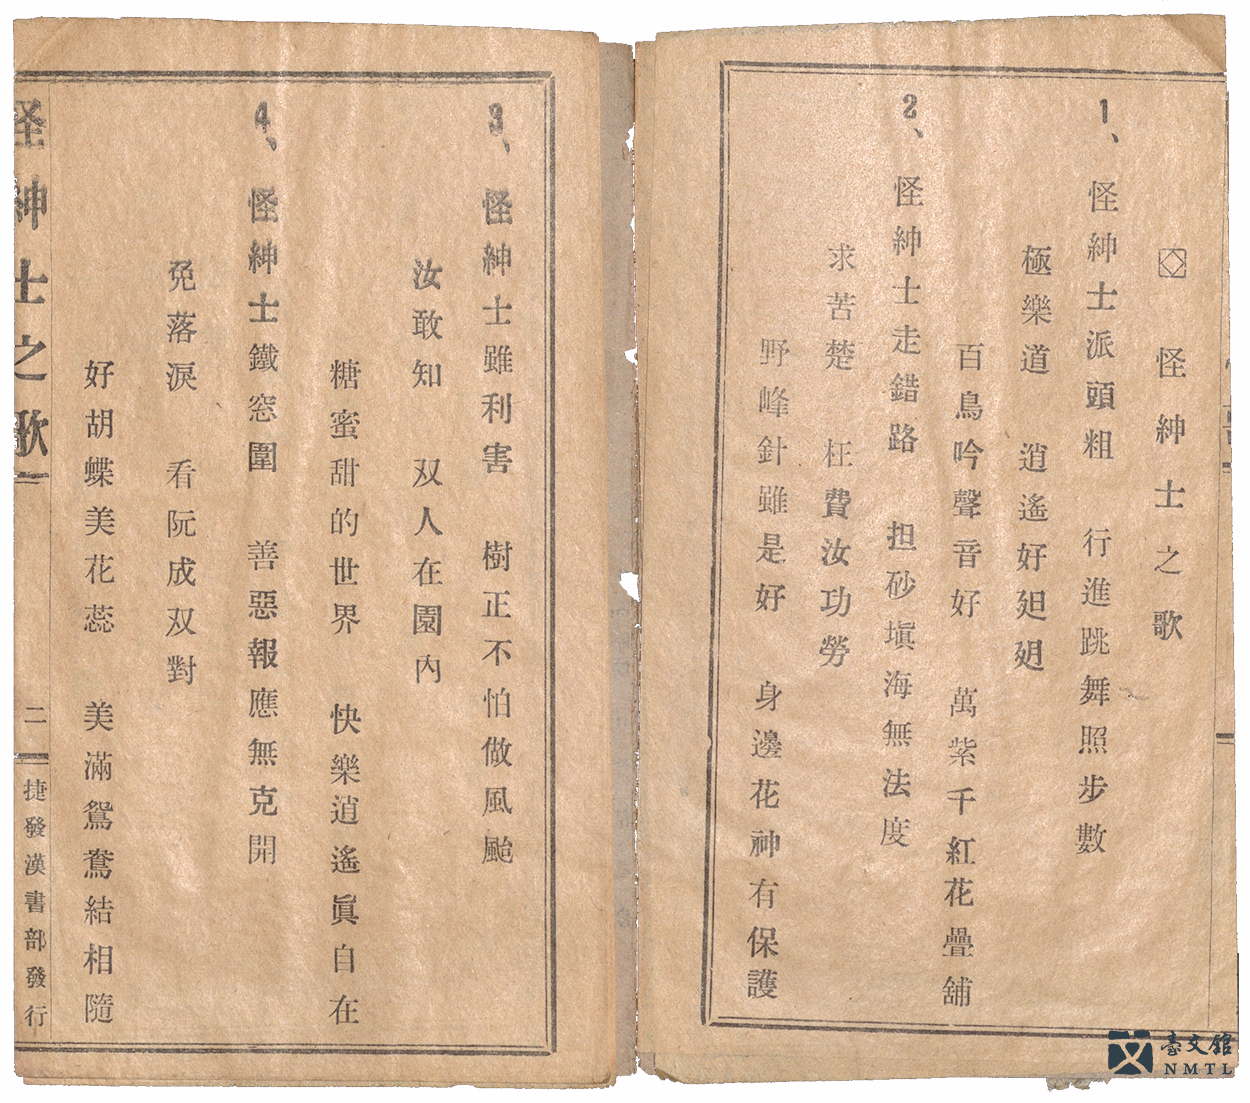 怪紳士之歌
1、怪紳士派頭粗 行進跳舞照步數
極樂道 逍遙好𨑨迌
百鳥吟聲音好 萬紫千紅花疊舖
2、怪紳士走錯路 担砂塡海無法度
求苦楚 枉費汝功勞
野峰針雖是好 身邊花神有保護
3、怪紳士雖利害 樹正不怕做風颱
汝敢知 双人在園內
糖蜜甜的世界 快樂逍遙眞自在
4、怪紳士鐵窓圍 善惡報應無克開
免落淚 看阮成双對
好胡蝶美花蕊 美滿鴛鴦結相隨
怪紳士之歌 二 捷發漢書部發行
臺文館
NMTL